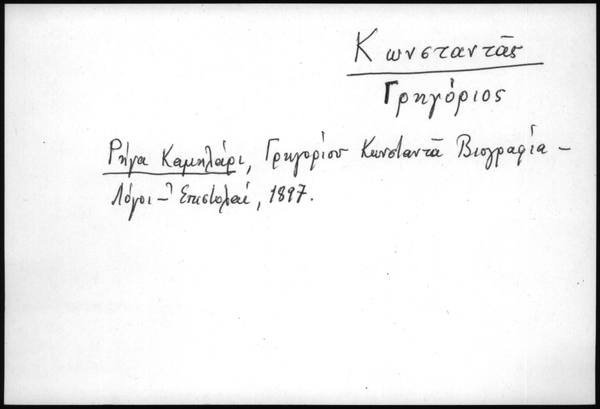 Κωνσταντᾶς
Γρηγόριος
Ρήγα Καμηλάρι, Γρηγορίου Κωνσταντᾶ Βιογραφία –
Λόγοι – Ἐπιστολαί, 1897.